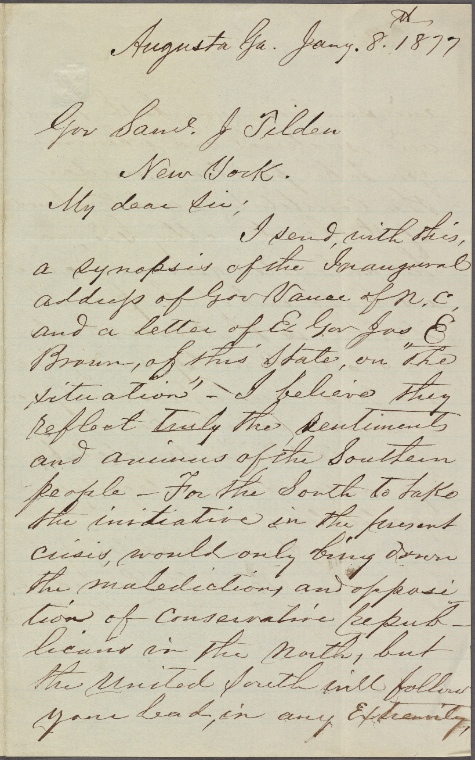 Augusta Ga. Jany. 8.th 1877
Gov Saml. J Tilden
New York.
My dear Sir;
I send, with this,
a synopsis of the Inaugural
address of Gov Vance of N. C,
and a letter of Ex Gov Jos E
Brown, of this State, on "the
situation" – I believe they
reflect truly the sentiments
and animus of the Southern
people – For the South to take
the initiative in the present
crisis, would only bring down
the maledictions and opposi
tion of conservative repub-
licans in the North, but
the United South will follow
your lead, in any Extremity,